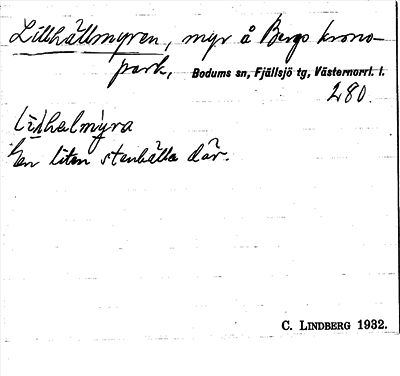 Lillhällmyren, myr å Bergs krono-
park, Bodums sn, Fjällsjö tg, Västernorrl. l.
280.
lilhelmyra
En liten stenhälla där.
C. LINDBERG 1932.